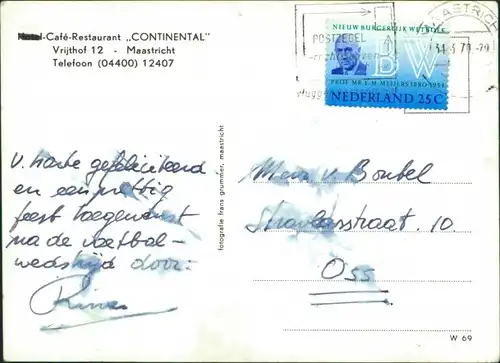 Hotel-Café-Restaurant „CONTINENTAL"
Vrijthof 12 - Maastricht
Telefoon (04400) 12407
POSTZEGEL
NIEUW BURGERLIJK WETBOEK
BW
PROF. MR. E. M. MEIJERS 1880-1954
NEDERLAND 25 C
v. harte gefeliciteerd
en een prettig
feest toegewenst
na de voetbal-
wedstrijd door:
Rinus
fotografie frans grummer, maastricht
Straat 10.
Oss
W 69